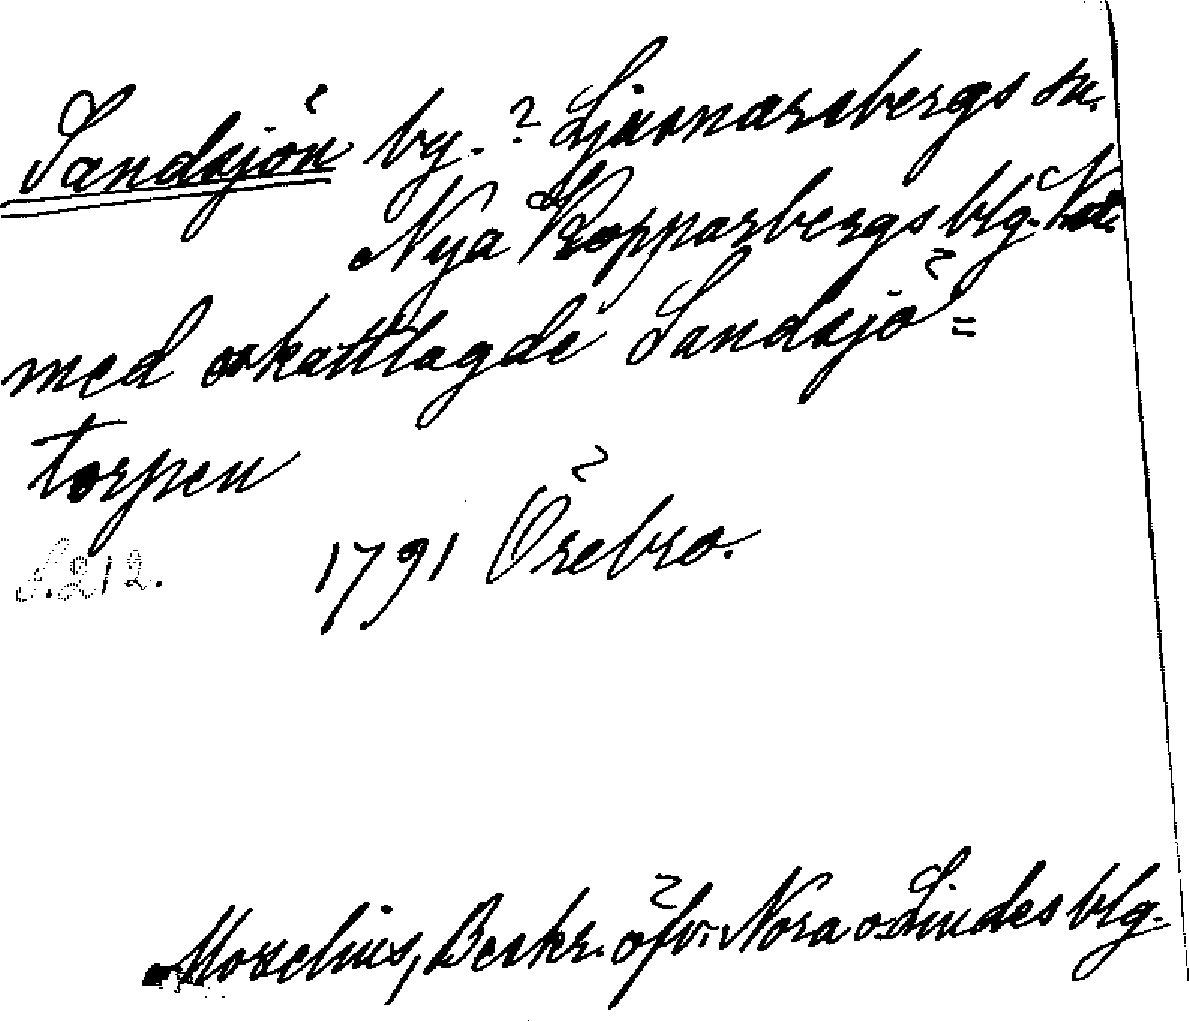 Sandsjön by. ? Ljusnarsbergs sn.
Nya Kopparbergs blg.
med skattlagde Sandsjö=
torpen
S. 212. 1791 Örebro.
Morelius, Beskr. öfv. Nora o. Lindes blg.